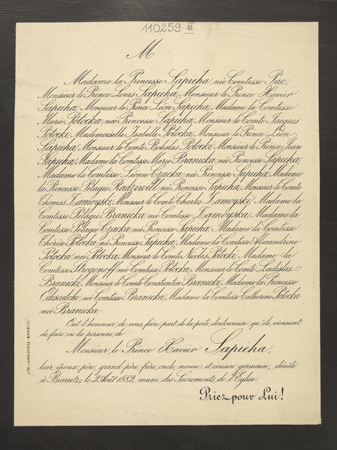 110259 III
M
Madame la Princesse Sapieha, née Comtesse Pac,
Monsieur le Prince Louis Sapieha, Monsieur le Prince Xavier
Sapieha, Monsieur le Prince Léon Sapieha, Madame la Comtesse
Marie Potocka née Princesse Sapieha, Monsieur le Comte Jacques
Potocki, Mademoiselle Isabelle Potocka, Monsieur le Prince Léon
Sapieha, Monsieur le Comte Boleslas Potocki, Monsieur le Prince Jean
Sapieha, Madame la Comtesse Marie Branicka née Princesse Sapieha,
Madame la Comtesse Léonie Czacka née Princesse Sapieha, Madame
la Princesse Pélagie Radziwill née Princesse Sapieha, Monsieur le Comte
Thomas Zamoyski, Monsieur le Comte Charles Zamoyski, Madame la
Comtesse Pélagie Branicka née Comtesse Zamoyska, Madame la
Comtesse Pélagie Czacka née Princesse Sapieha, Madame la Comtesse
Thérèse Potocka née Princesse Sapieha, Madame la Comtesse Alexandrine
Potocka née Potocka, Monsieur le Comte Nicolas Potocki, Madame la
Comtesse Strogonoff née Comtesse Potocka, Monsieur le Comte Ladislas
Branicki, Monsieur le Comte Constantin Branicki, Madame la Princesse
Odescalchi née Comtesse Branicka, Madame la Comtesse Catherine Potocka
née Branicka.
Ont l'honneur de vous faire part de la perte douloureuse qu'ils viennent
de faire en la personne de
Monsieur le Prince Xavier Sapieha,
leur époux, père, grand-père, frère, oncle, neveu et cousin germain, décédé
à Biarritz, le 2 Août 1882, muni des Sacrements de l'Église.
Priez pour Lui!